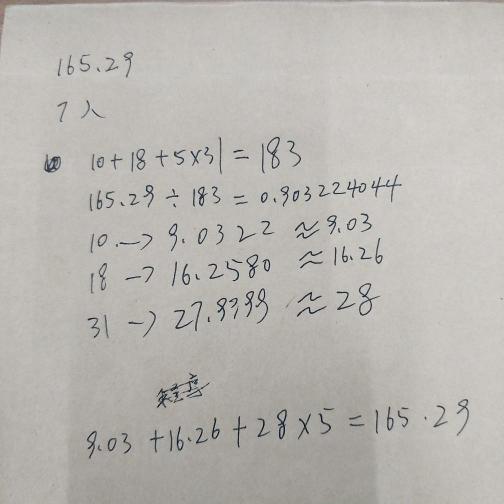 165.29
7人
10+18+5×31=183
165.29÷183=0.903224044
10→9.0322≈9.03
18→16.2580≈16.26
31→27.9999≈28
9.03+16.26+28×5=165.29